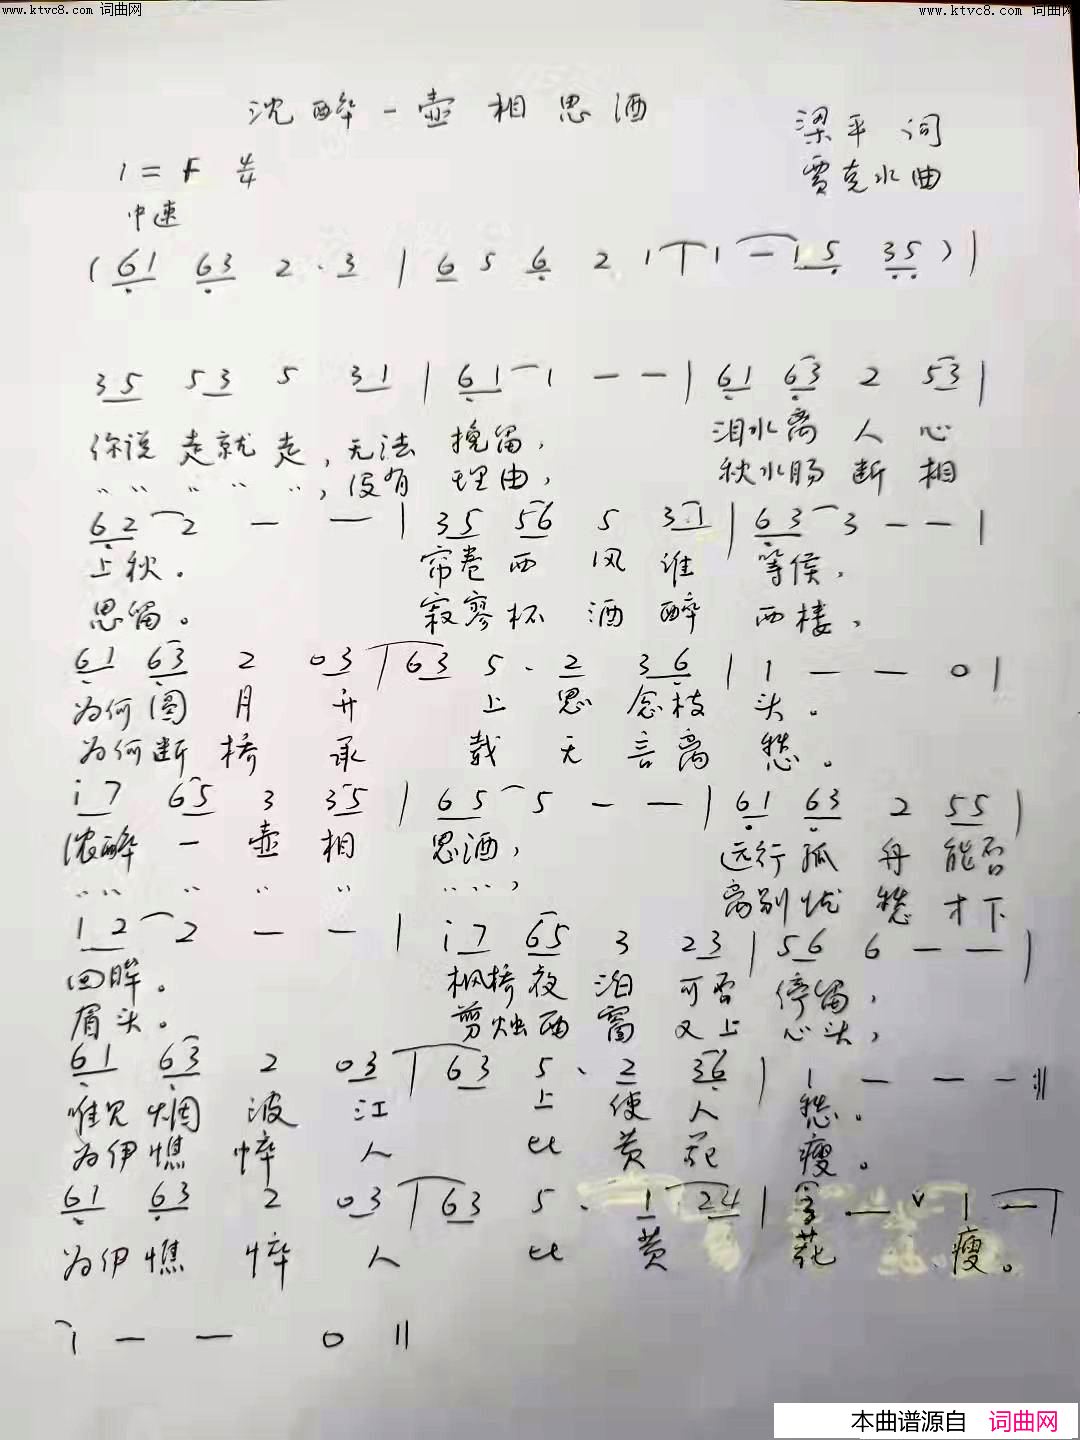 www.ktvc8.com 词曲网 www.ktvc8.com 词曲网
沈醉一壶相思酒
梁平 词
1=F 4/4 贾克水曲
中速
(61 63 2·3 | 6 5 6 2 1 | 1 — 15 35) |
35 53 5 31 | 61 1 — — | 61 63 2 53 |
你说走就走,无法挽留, 泪水离人心
" " " " ",没有理由, 秋水肠断相
62 2 — — | 35 56 5 31 | 63 3 — — |
上秋。 帘卷西风谁等侯,
思留。 寂寥杯酒醉西楼,
61 63 2 03 | 63 5·2 36 | 1 — — 0 |
为何圆月升上思念枝头。
为何断桥承载无言离愁。
i7 65 3 35 | 65 5 — — | 61 63 2 55 |
浓醉一壶相思酒, 远行孤舟能否
" " " " " " ", 离别忧愁才下
12 2 — — | i7 65 3 23 | 56 6 — — |
回眸。 枫桥夜泊可否停留,
眉头。 剪烛西窗又上心头,
61 63 2 03 | 63 5·2 36 | 1 — — — :||
唯见烟波江上使人愁。
为伊憔悴人比黄花瘦。
61 63 2 03 | 63 5·1 24 | — ∨ 1 — |
为伊憔悴人比黄花瘦。
1 — — 0 ||
本曲谱源自 词曲网